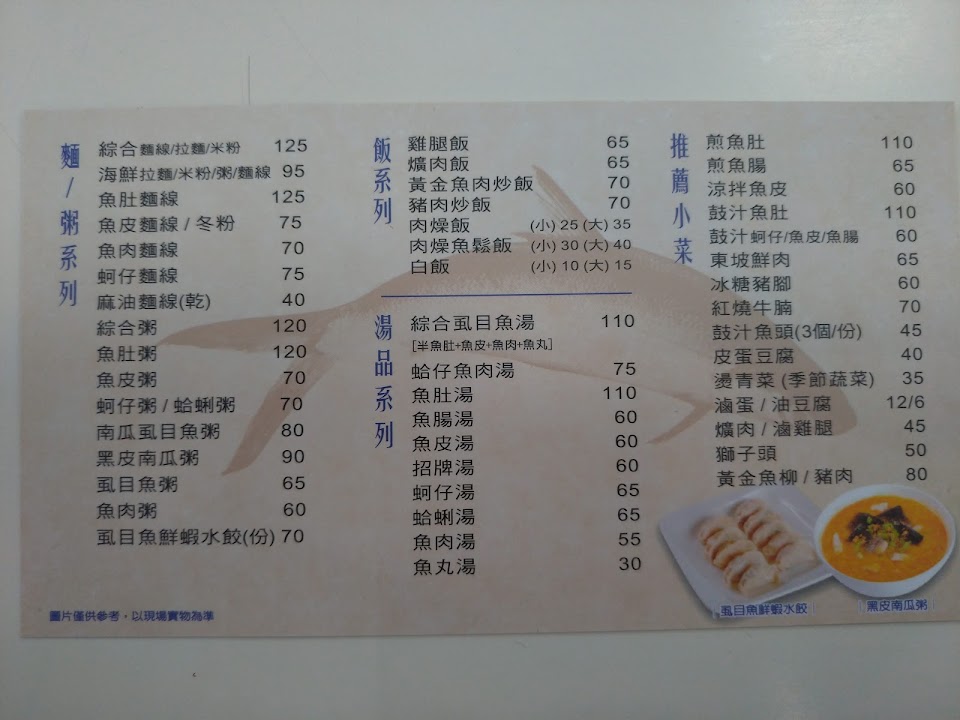 麵/粥系列
綜合麵線/拉麵/米粉 125
海鮮拉麵/米粉/粥/麵線 95
魚肚麵線 125
魚皮麵線/冬粉 75
魚肉麵線 70
蚵仔麵線 75
麻油麵線(乾) 40
綜合粥 120
魚肚粥 120
魚皮粥 70
蚵仔粥/蛤蜊粥 70
南瓜虱目魚粥 80
黑皮南瓜粥 90
虱目魚粥 65
魚肉粥 60
虱目魚鮮蝦水餃(份) 70
圖片僅供參考，以現場實物為準
飯系列
雞腿飯 65
爌肉飯 65
黃金魚肉炒飯 70
豬肉炒飯 70
肉燥飯 (小) 25 (大) 35
肉燥魚鬆飯 (小) 30 (大) 40
白飯 (小) 10 (大) 15
湯品系列
綜合虱目魚湯 110
[半魚肚+魚皮+魚肉+魚丸]
蛤仔魚肉湯 75
魚肚湯 110
魚腸湯 60
魚皮湯 60
招牌湯 60
蚵仔湯 65
蛤蜊湯 65
魚肉湯 55
魚丸湯 30
推薦小菜
煎魚肚 110
煎魚腸 65
涼拌魚皮 60
鼓汁魚肚 110
鼓汁蚵仔/魚皮/魚腸 60
東坡鮮肉 65
冰糖豬腳 60
紅燒牛腩 70
鼓汁魚頭(3個/份) 45
皮蛋豆腐 40
燙青菜 (季節蔬菜) 35
滷蛋/油豆腐 12/6
爌肉/滷雞腿 45
獅子頭 50
黃金魚柳/豬肉 80
虱目魚鮮蝦水餃
黑皮南瓜粥